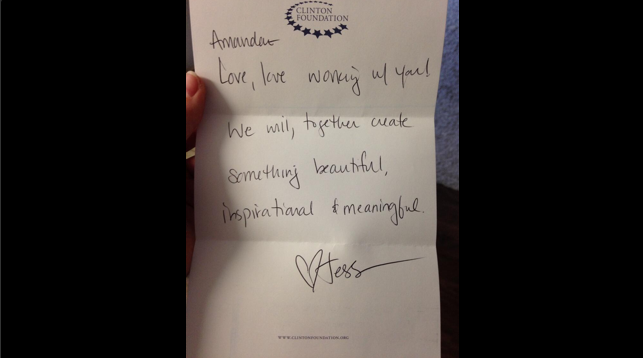 CLINTON
FOUNDATION
Amanda-
Love, love working w/ you!
We will, together create
something beautiful,
inspirational & meaningful.
♡Jess
WWW.CLINTONFOUNDATION.ORG